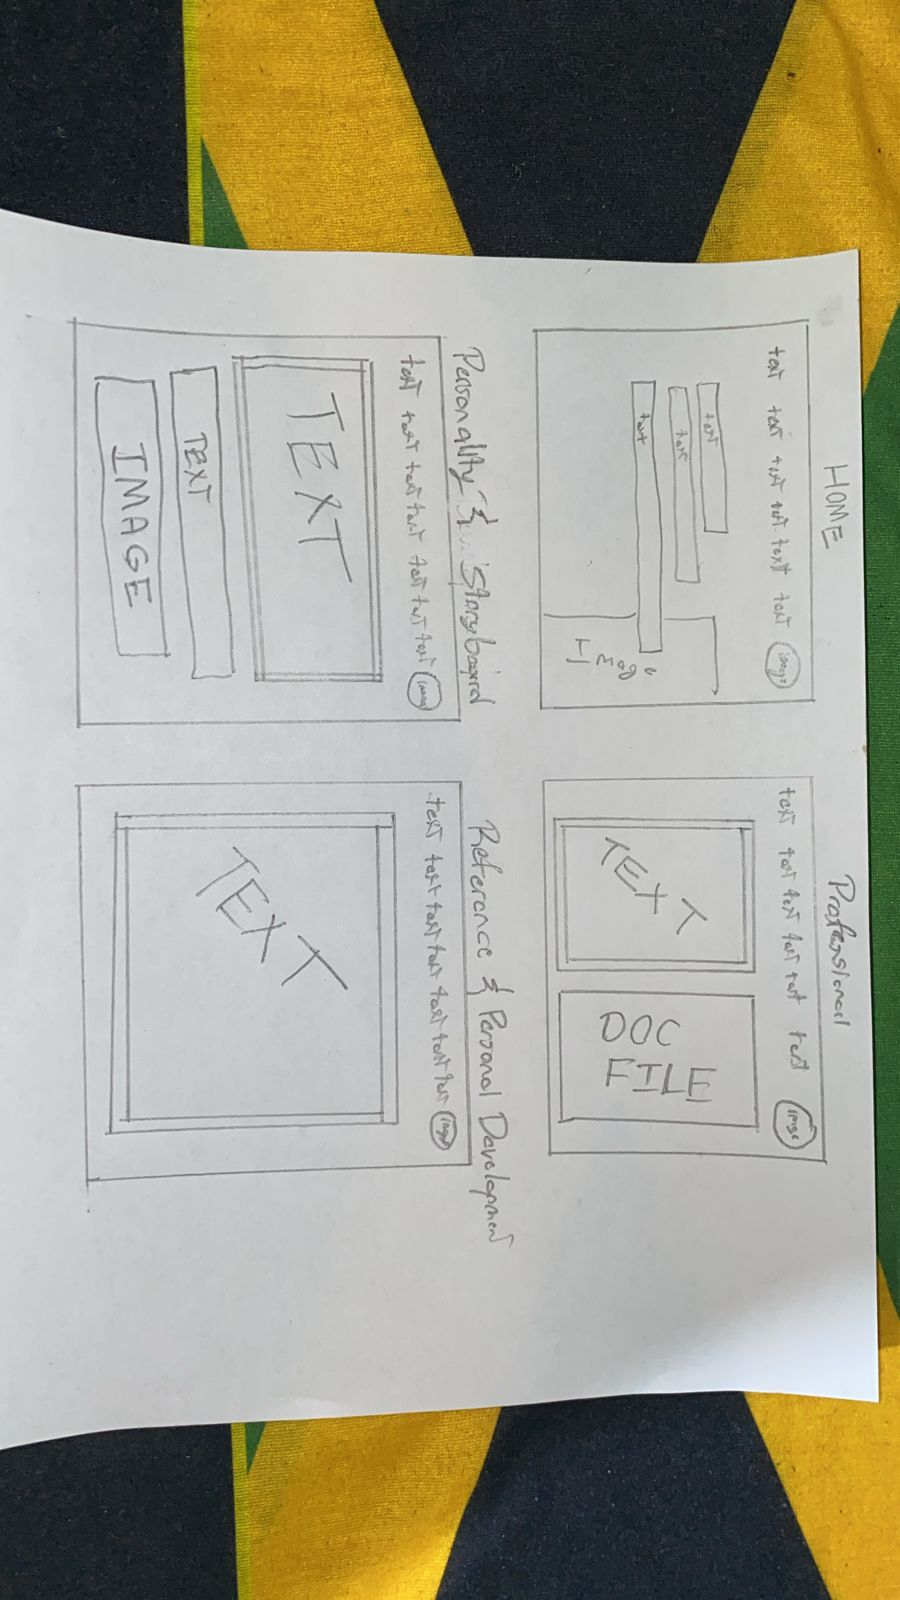 HOME
text text text text text text image
text
text
text
Professional
text text text text text text image
TEXT
DOC
FILE
Personality & Storyboard
text text text text text text text image
TEXT
TEXT
IMAGE
Reference & Personal Development
text text text text text text text image
TEXT